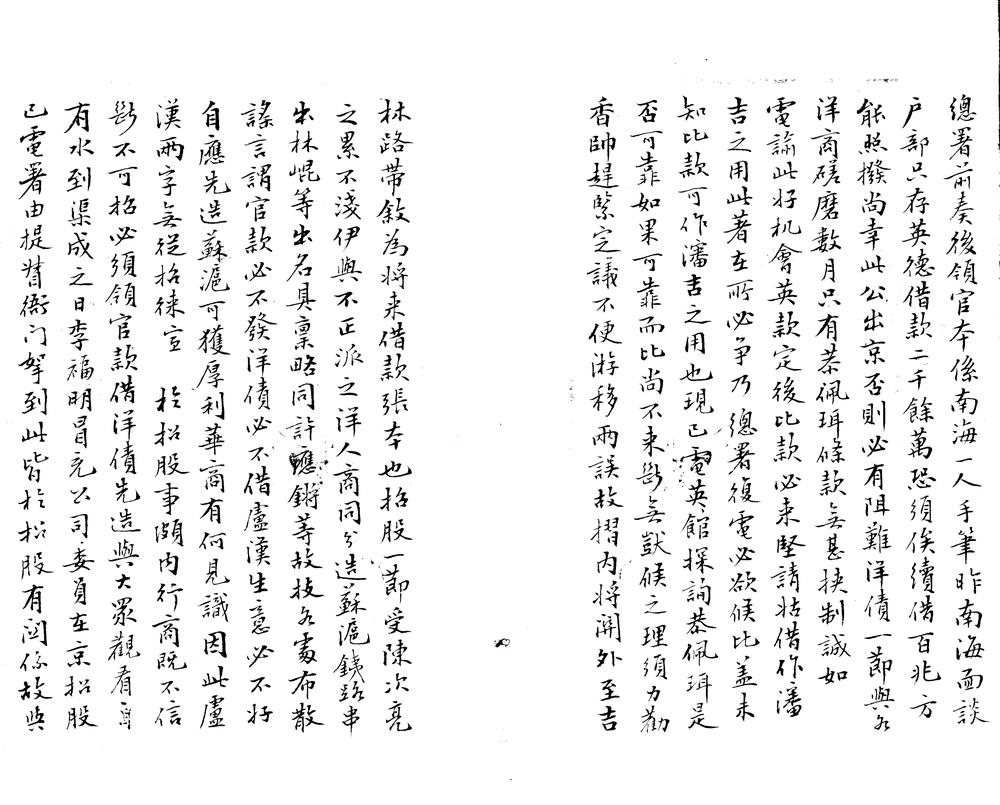 總署前奏後領官本係南海一人手筆昨南海面談
戶部只存英德借款二千餘萬恐須俟續借百兆方
能照撥尚幸此公出京否則必有阻難洋債一節與各
洋商磋磨數月只有恭佩珥條款無甚挾制誠如
電諭此好机會英款定後比款必來堅請姑借作瀋
吉之用此著在所必爭乃 總署復電必欲候比蓋未
知比款可作瀋吉之用也現已電英館探詢恭佩珥是
否可靠如果可靠而比尚不來斷無獃候之理須力勸
香帥趕緊定議不便游移兩誤故摺內將關外至吉
林路帶敘為將來借款張本也招股一節受陳次亮
之累不淺伊與不正派之洋人商同分造蘇滬鐵路串
出林崐等出名具稟略同許應鏘等故技各處布散
謠言謂官款必不發洋債必不借盧漢生意必不好
自應先造蘇滬可獲厚利華商有何見識因此盧
漢兩字無從招徠宣 於招股事頗內行商既不信
斷不可招必須領官款借洋債先造與大眾觀看自
有水到渠成之日李福明冒充公司委員在京招股
已電署由提督衙门拏到此皆於招股有關係故與